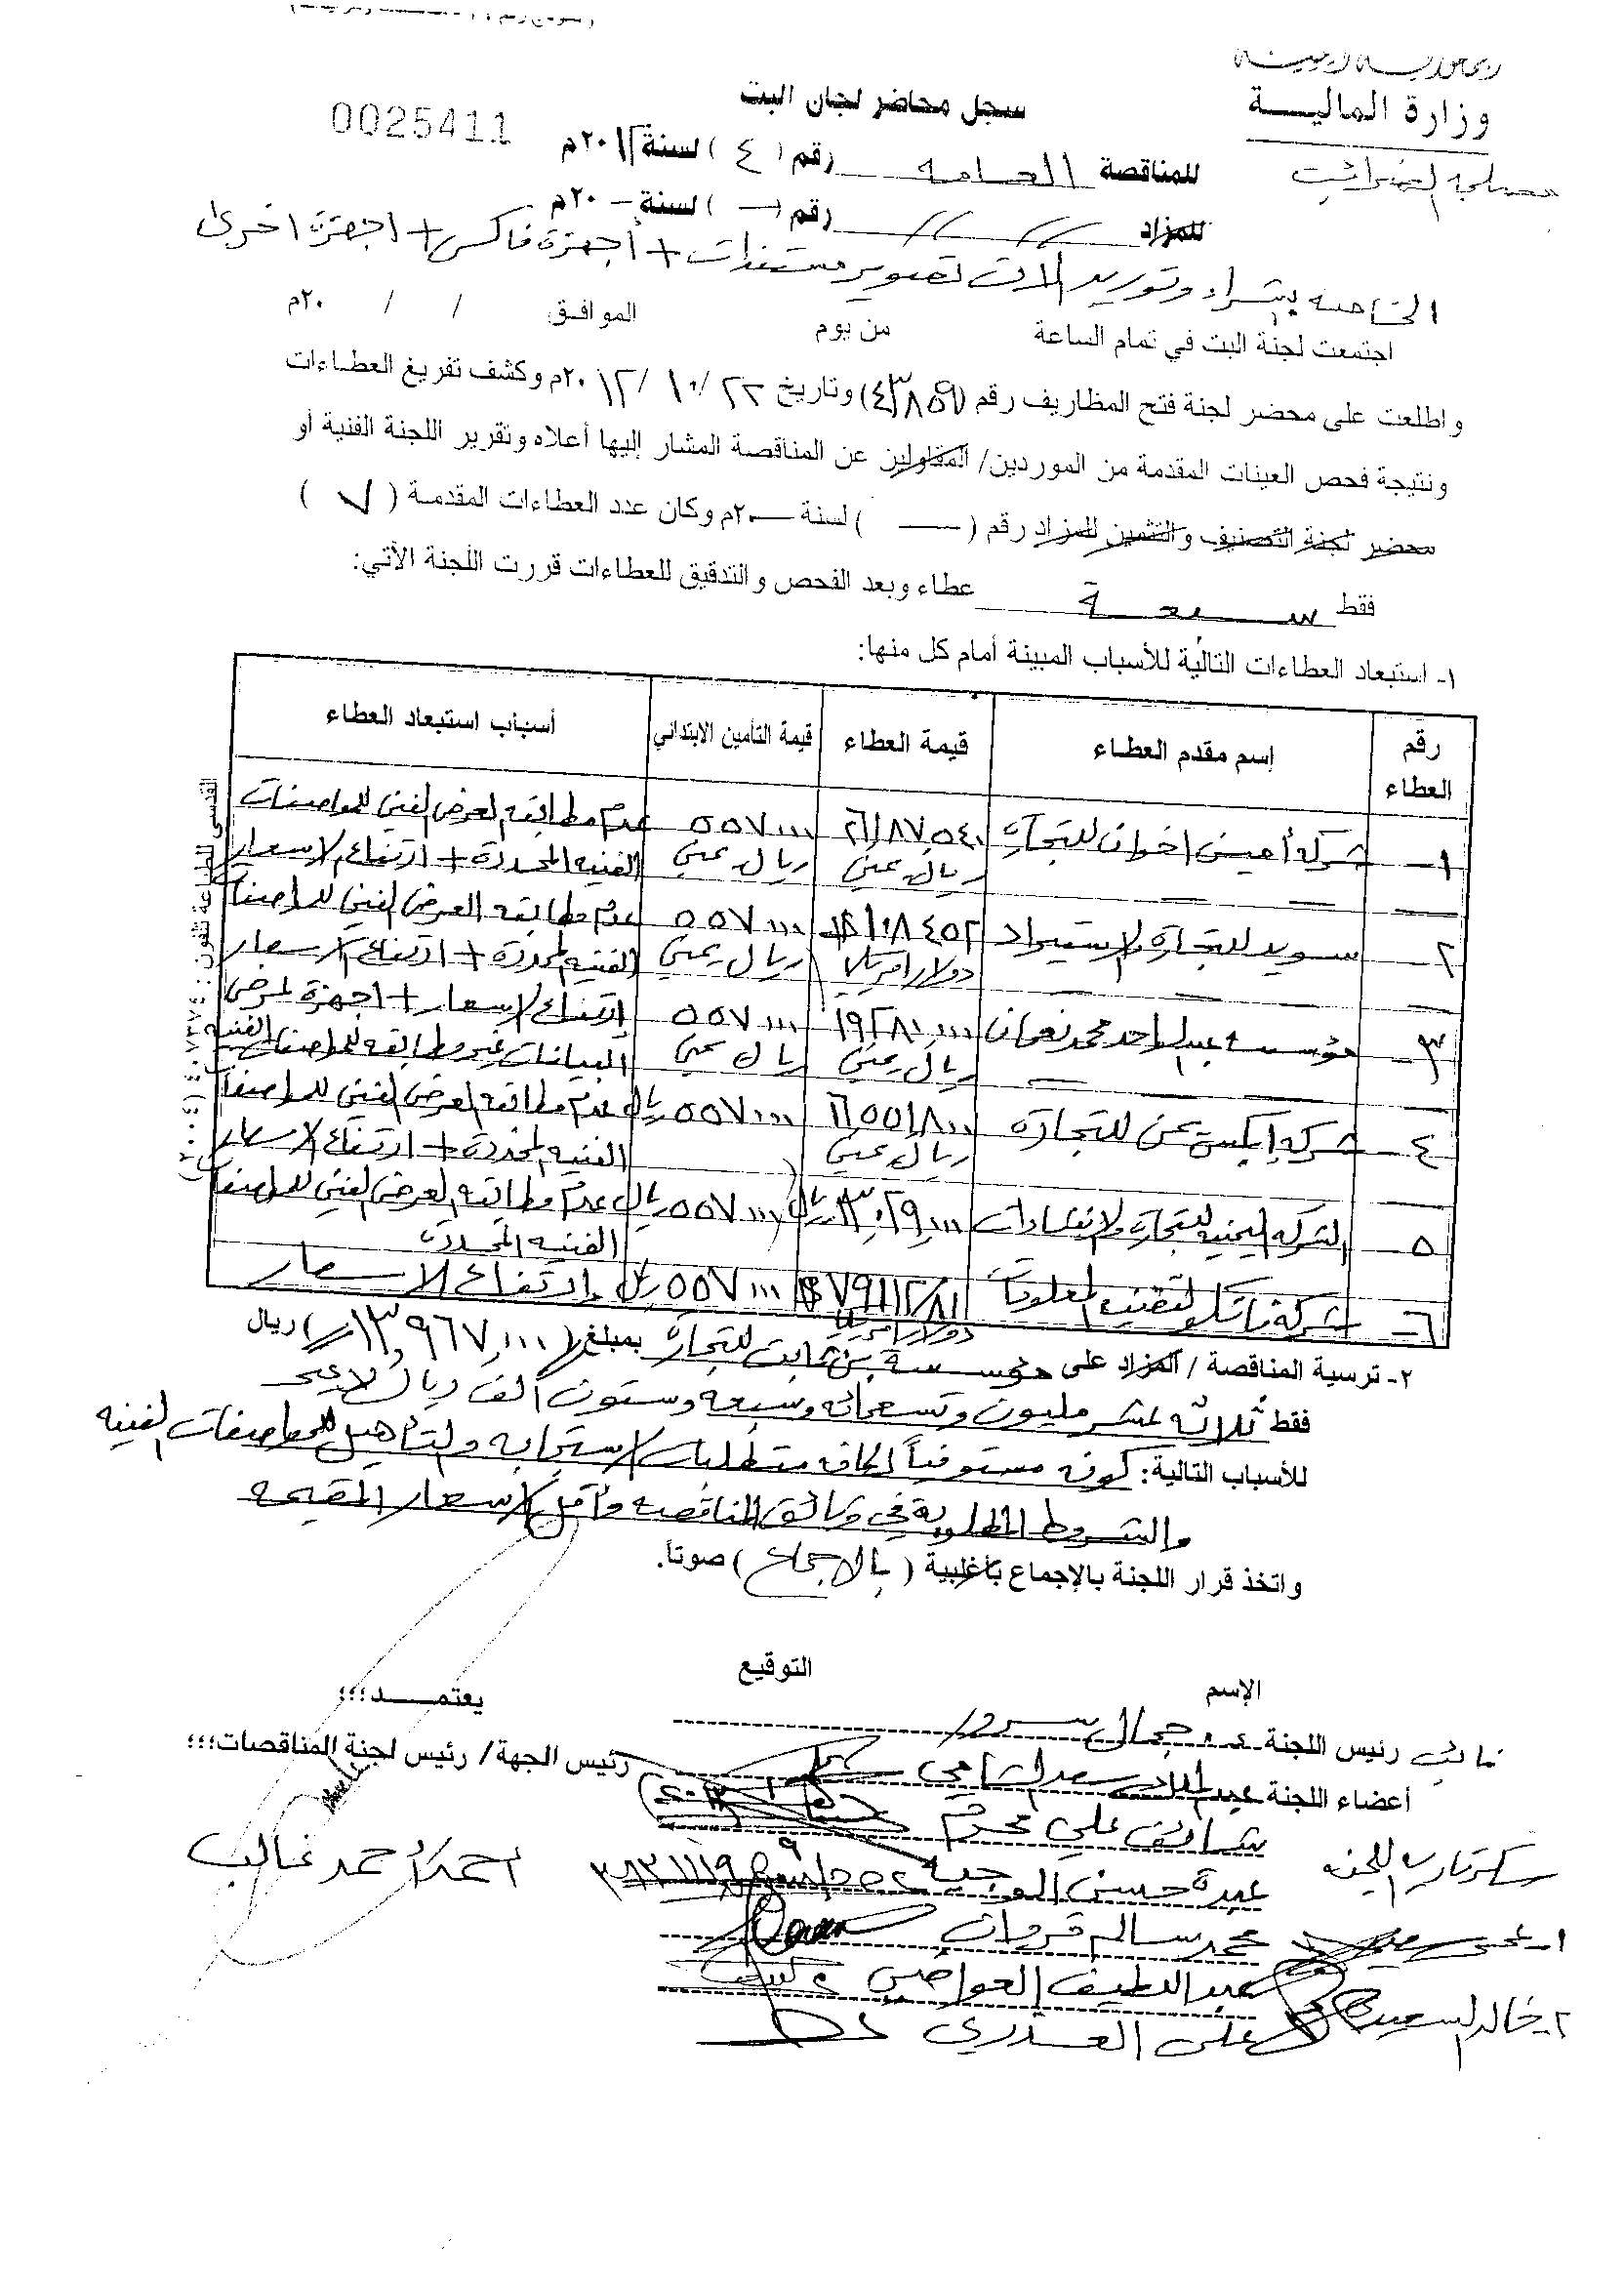 الجمهورية اليمنية
وزارة المالية
مصلحة الضرائب
0025411
سجل محاضر لجان البت
للمناقصة العامه رقم ( ٤ ) لسنة ٢٠١٢م
للمزاد // // رقم ( — ) لسنة — ٢٠م
الخاصه بشراء وتوريد الات تصوير مستندات + أجهزة فاكس + اجهزة اخرى
اجتمعت لجنة البت في تمام الساعة من يوم الموافق / / ٢٠م
واطلعت على محضر لجنة فتح المظاريف رقم (٤٣٨٥٩) وتاريخ ٢٢/١٠/٢٠١٢م وكشف تفريغ العطاءات
ونتيجة فحص العينات المقدمة من الموردين/ المقاولين عن المناقصة المشار إليها أعلاه وتقرير اللجنة الفنية أو
محضر لجنة التصنيف والتثمين للمزاد رقم ( — ) لسنة — ٢٠م وكان عدد العطاءات المقدمة ( ٧ )
فقط سبعة عطاء وبعد الفحص والتدقيق للعطاءات قررت اللجنة الآتي:
١- استبعاد العطاءات التالية للأسباب المبينة أمام كل منها:
رقم العطاء إسم مقدم العطاء قيمة العطاء قيمة التأمين الابتدائي أسباب استبعاد العطاء
١- شركة أمين اخوان للتجارة ريال يمني ٥٥٧,٠٠٠ ريال يمني عدم مطابقه العرض الفني للمواصفات
الفنيه المحددة + ارتفاع الاسعار
٢- سويد للتجارة والاستيراد دولار امريكي ٥٥٧,٠٠٠ ريال يمني عدم مطابقه العرض الفني للمواصفات
الفنيه المحددة + ارتفاع الاسعار
٣- مؤسسه عبدالواحد محمد نعمان ١٩,٢٨٠,٠٠٠ ريال يمني ٥٥٧,٠٠٠ ريال يمني ارتفاع الاسعار + اجهزة عرض
البيانات غير مطابقه للمواصفات الفنيه
٤- شركة ايكس يمن للتجارة ١٦,٥٥١,٨٠٠ ريال يمني ٥٥٧,٠٠٠ ريال عدم مطابقه العرض الفني للمواصفات
الفنيه المحددة + ارتفاع الاسعار
٥- الشركه اليمنيه للتجاره والانشاءات ١٣,٠٢٩,٠٠٠ ريال ٥٥٧,٠٠٠ ريال عدم مطابقه العرض الفني للمواصفات
الفنيه المحددة
٦- شركة ناتكو لتقنيه المعلومات ٧٩١١٢/٨١ دولار امريكي ٥٥٧,٠٠٠ ريال إرتفاع الاسعار
٢- ترسية المناقصة / المزاد على مؤسسة بن ثابت للتجارة بمبلغ (١٣,٩٦٧,٠٠٠) ريال
فقط ثلاثه عشر مليون وتسعمائه وسبعه وستون الف ريال لا غير
للأسباب التالية: كونه مستوفياً لكافه متطلبات الاستجابه والتأهيل للمواصفات الفنيه
والشروط المطلوبة في وثائق المناقصه وأقل الاسعار المقيمه
واتخذ قرار اللجنة بالإجماع بأغلبية ( بالاجماع ) صوتاً.
الإسم التوقيع يعتمد؛؛؛
نائب رئيس اللجنة جمال سرور
رئيس الجهة/ رئيس لجنة المناقصات؛؛؛
أعضاء اللجنة سعد الشامي
شائف علي محرم
عبده حسن الوجيه
محمد سالم
عبداللطيف العواضي
علي
احمد احمد غالب
سكرتارية اللجنه
٢- خالد السعيدي